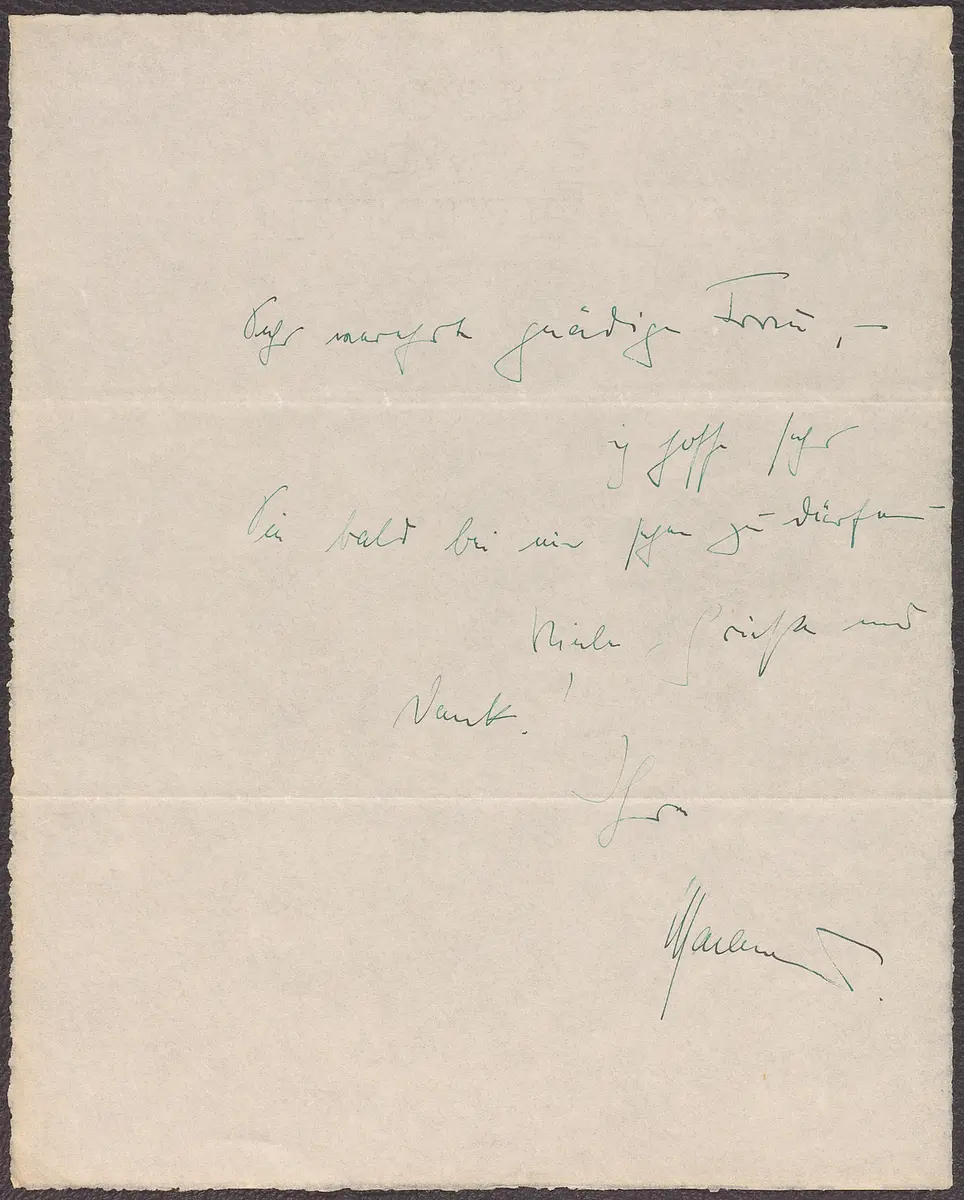 Sehr verehrte gnädige Frau, —
ich hoffe sehr
Sie bald bei mir sehen zu dürfen —
Viele Grüße und
Dank!
Ihre
Marlene D.